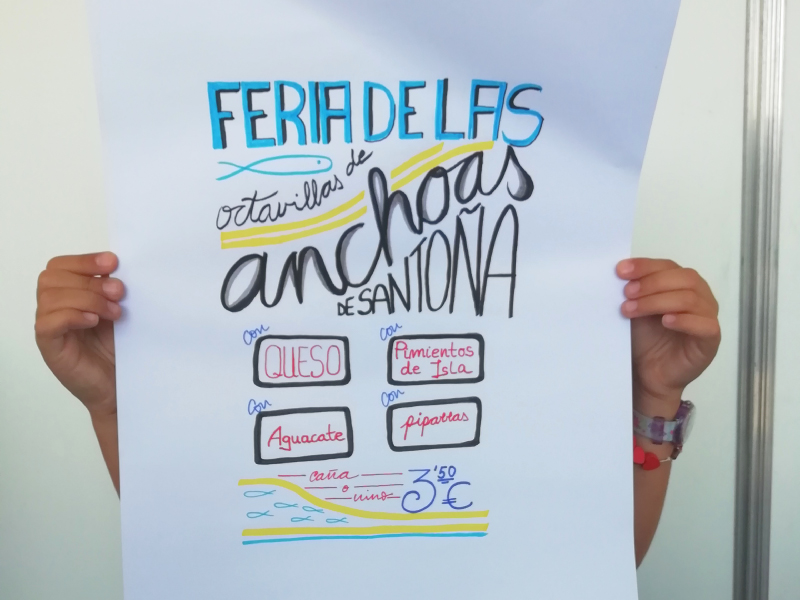 FERIA DE LAS
octavillas de
anchoas
DE SANTOÑA
con
QUESO
con
Pimientos
de Isla
con
Aguacate
con
piparras
caña
o
vino
3'50 €